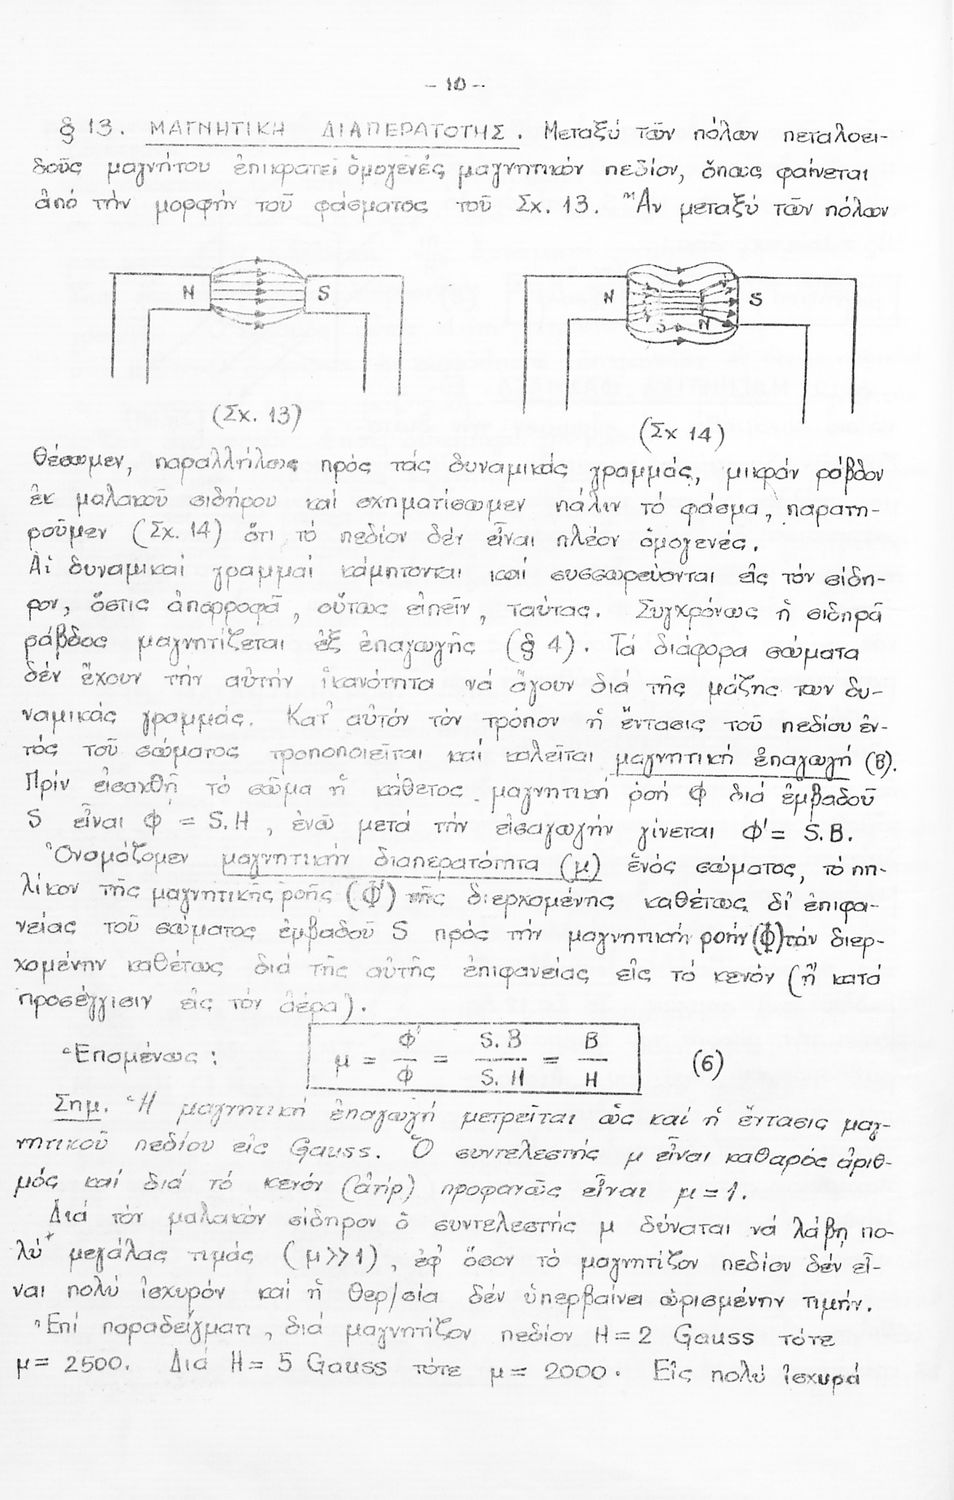 - 10 -
§ 13. ΜΑΓΝΗΤΙΚΗ ΔΙΑΠΕΡΑΤΟΤΗΣ. Μεταξύ τῶν πόλων πεταλοει-
δοῦς μαγνήτου ἐπικρατεῖ ὁμογενές μαγνητικόν πεδίον, ὅπως φαίνεται
ἀπό τήν μορφήν τοῦ φάσματος τοῦ Σχ. 13. Ἄν μεταξύ τῶν πόλων
N S
N S
S N
(Σχ. 13)
(Σχ 14)
θέσωμεν, παραλλήλως πρός τάς δυναμικάς γραμμάς, μικράν ράβδον
ἐκ μαλακοῦ σιδήρου καί σχηματίσωμεν πάλιν τό φάσμα, παρατη-
ροῦμεν (Σχ. 14) ὅτι τό πεδίον δέν εἶναι πλέον ὁμογενές.
Αἱ δυναμικαί γραμμαί κάμπτονται καί συσσωρεύονται εἰς τόν σίδη-
ρον, ὅστις ἀπορροφᾶ, οὕτως εἰπεῖν, ταύτας. Συγχρόνως ἡ σιδηρᾶ
ράβδος μαγνητίζεται ἐξ ἐπαγωγῆς (§ 4). Τά διάφορα σώματα
δέν ἔχουν τήν αὐτήν ἱκανότητα νά ἄγουν διά τῆς μάζης των δυ-
ναμικάς γραμμάς. Κατ' αὐτόν τόν τρόπον ἡ ἔντασις τοῦ πεδίου ἐν-
τός τοῦ σώματος τροποποιεῖται καί καλεῖται μαγνητική ἐπαγωγή (B).
Πρίν εἰσαχθῆ τό σῶμα ἡ κάθετος μαγνητική ροή Φ διά ἐμβαδοῦ
S εἶναι Φ = S.H, ἐνῶ μετά τήν εἰσαγωγήν γίνεται Φ' = S.B.
Ὀνομάζομεν μαγνητικήν διαπερατότητα (μ) ἑνός σώματος, τό πη-
λίκον τῆς μαγνητικῆς ροῆς (Φ') τῆς διερχομένης καθέτως δι' ἐπιφα-
νείας τοῦ σώματος ἐμβαδοῦ S πρός τήν μαγνητικήν ροήν (Φ) τήν διερ-
χομένην καθέτως διά τῆς αὐτῆς ἐπιφανείας εἰς τό κενόν (ἤ κατά
προσέγγισιν εἰς τόν ἀέρα).
Ἑπομένως: μ = Φ'/Φ = S.B/S.H = B/H (6)
Σημ. Ἡ μαγνητική ἐπαγωγή μετρεῖται ὡς καί ἡ ἔντασις μαγ-
νητικοῦ πεδίου εἰς Gauss. Ὁ συντελεστής μ εἶναι καθαρός ἀριθ-
μός καί διά τό κενόν (ἀήρ) προφανῶς εἶναι μ = 1.
Διά τόν μαλακόν σίδηρον ὁ συντελεστής μ δύναται νά λάβῃ πο-
λύ μεγάλας τιμάς (μ >> 1), ἐφ' ὅσον τό μαγνητίζον πεδίον δέν εἶ-
ναι πολύ ἰσχυρόν καί ἡ θερ/σία δέν ὑπερβαίνει ὡρισμένην τιμήν.
Ἐπί παραδείγματι, διά μαγνητίζον πεδίον H = 2 Gauss τότε
μ = 2500. Διά H = 5 Gauss τότε μ = 2000. Εἰς πολύ ἰσχυρά